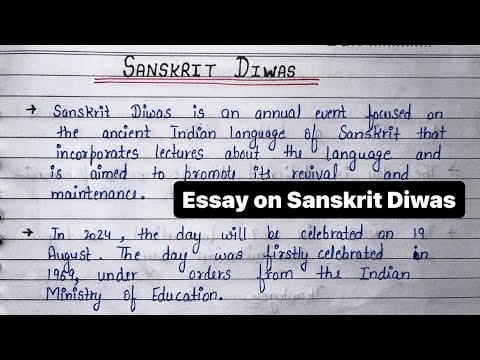 SANSKRIT DIWAS
→ Sanskrit Diwas is an annual event focused on
the ancient Indian language of Sanskrit that
incorporates lectures about the language and
is aimed to promote its revival and
maintenance.
Essay on Sanskrit Diwas
→ In 2024, the day will be celebrated on 19
August. The day was firstly celebrated in
1969, under orders from the Indian
Ministry of Education.